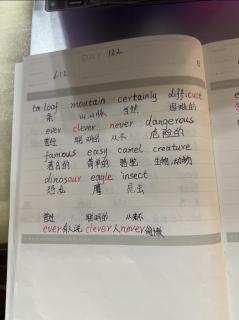 DAY 132
612
loaf moutain certainly difficult
条 山,山脉 当然 困难的
ever clever never dangerous
曾经 聪明的 从不 危险的
famous easy camel creature
著名的 简单的 骆驼 生物,动物
dinosaur eagle insect
恐龙 鹰 昆虫
曾经 聪明的 从来不
ever有人说clever人never偷懒